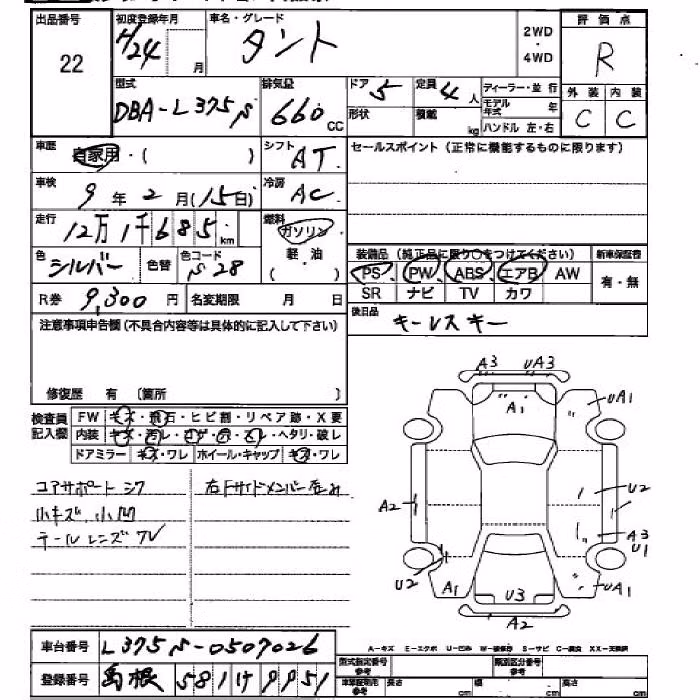 出品番号 22
初度登録年月 H24 月
車名・グレード タント
2WD・4WD
評価点 R
型式 DBA-L375S
排気量 660 CC
ドア 5
形状
定員 4 人
積載 kg
ディーラー・並行
モデル年式 年
ハンドル 左・右
外装 C
内装 C
車歴 自家用・( )
シフト AT
セールスポイント (正常に機能するものに限ります)
車検 9年2月(15日)
冷房 AC
走行 12万1千685km
燃料 ガソリン 軽・油
色 シルバー
色替
色コード S28
装備品 (純正品に限り○をつけてください)
新車保証書
PS PW ABS エアB AW
有・無
SR ナビ TV カワ
R券 9,300円
名変期限 月 日
後日品 キーレスキー
注意事項申告欄 (不具合内容等は具体的に記入して下さい)
修復歴 有 〔箇所 〕
検査員記入欄
FW キズ・飛石・ヒビ割・リペア跡・X要
内装 キズ・汚レ・コゲ・穴・スレ・ヘタリ・破レ
ドアミラー キズ・ワレ ホイール・キャップ キズ・ワレ
コアサポート シワ
右Fサイドメンバー歪み
小キズ 小凹
テールレンズ ワレ
A3 UA3
A1 UA1
A2 U2
A3
U1
U2 A1 U3 UA1
A2
A-キズ E-エクボ U-凹み S-サビ C-腐食
車台番号 L375S-0507026
登録番号 島根 581 け 9951
型式指定番号 参考
類別区分番号 参考
参考 長さ cm 幅 cm 高さ cm